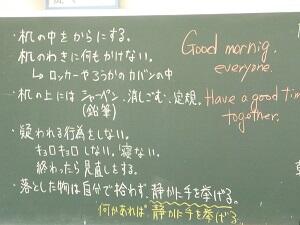 ・机の中をからにする。
・机のわきに何もかけない。
↳ ロッカーやろうかのカバンの中
・机の上には シャーペン、消しごむ、定規。
(鉛筆)
・疑われる行為をしない。
キョロキョロしない。寝ない。
終わったら見直しをする。
・落とした物は自分で拾わず、静かに手を挙げる。
何かあれば 静かに手を挙げる。
Good mornig,
everyone.
Have a good time
together.